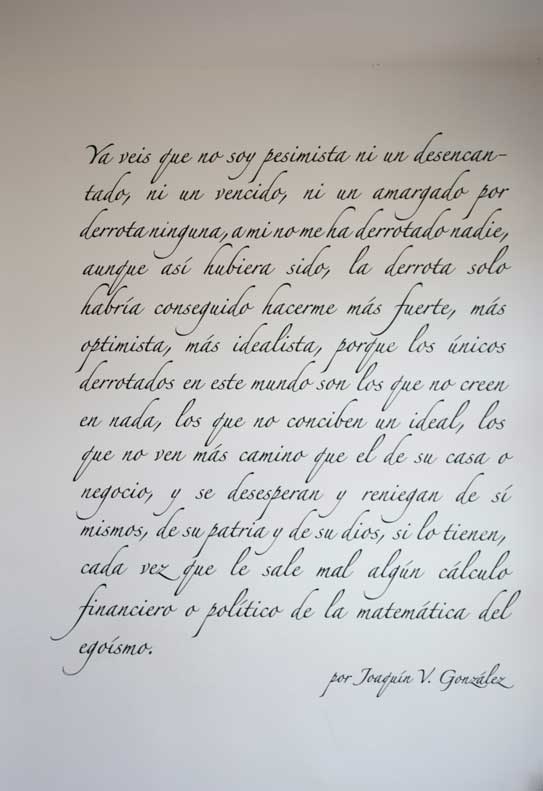 Ya veis que no soy pesimista ni un desencan-
tado, ni un vencido, ni un amargado por
derrota ninguna, a mi no me ha derrotado nadie,
aunque así hubiera sido, la derrota solo
habría conseguido hacerme más fuerte, más
optimista, más idealista, porque los únicos
derrotados en este mundo son los que no creen
en nada, los que no conciben un ideal, los
que no ven más camino que el de su casa o
negocio, y se desesperan y reniegan de sí
mismos, de su patria y de su dios, si lo tienen,
cada vez que le sale mal algún cálculo
financiero o político de la matemática del
egoísmo.
por Joaquín V. González